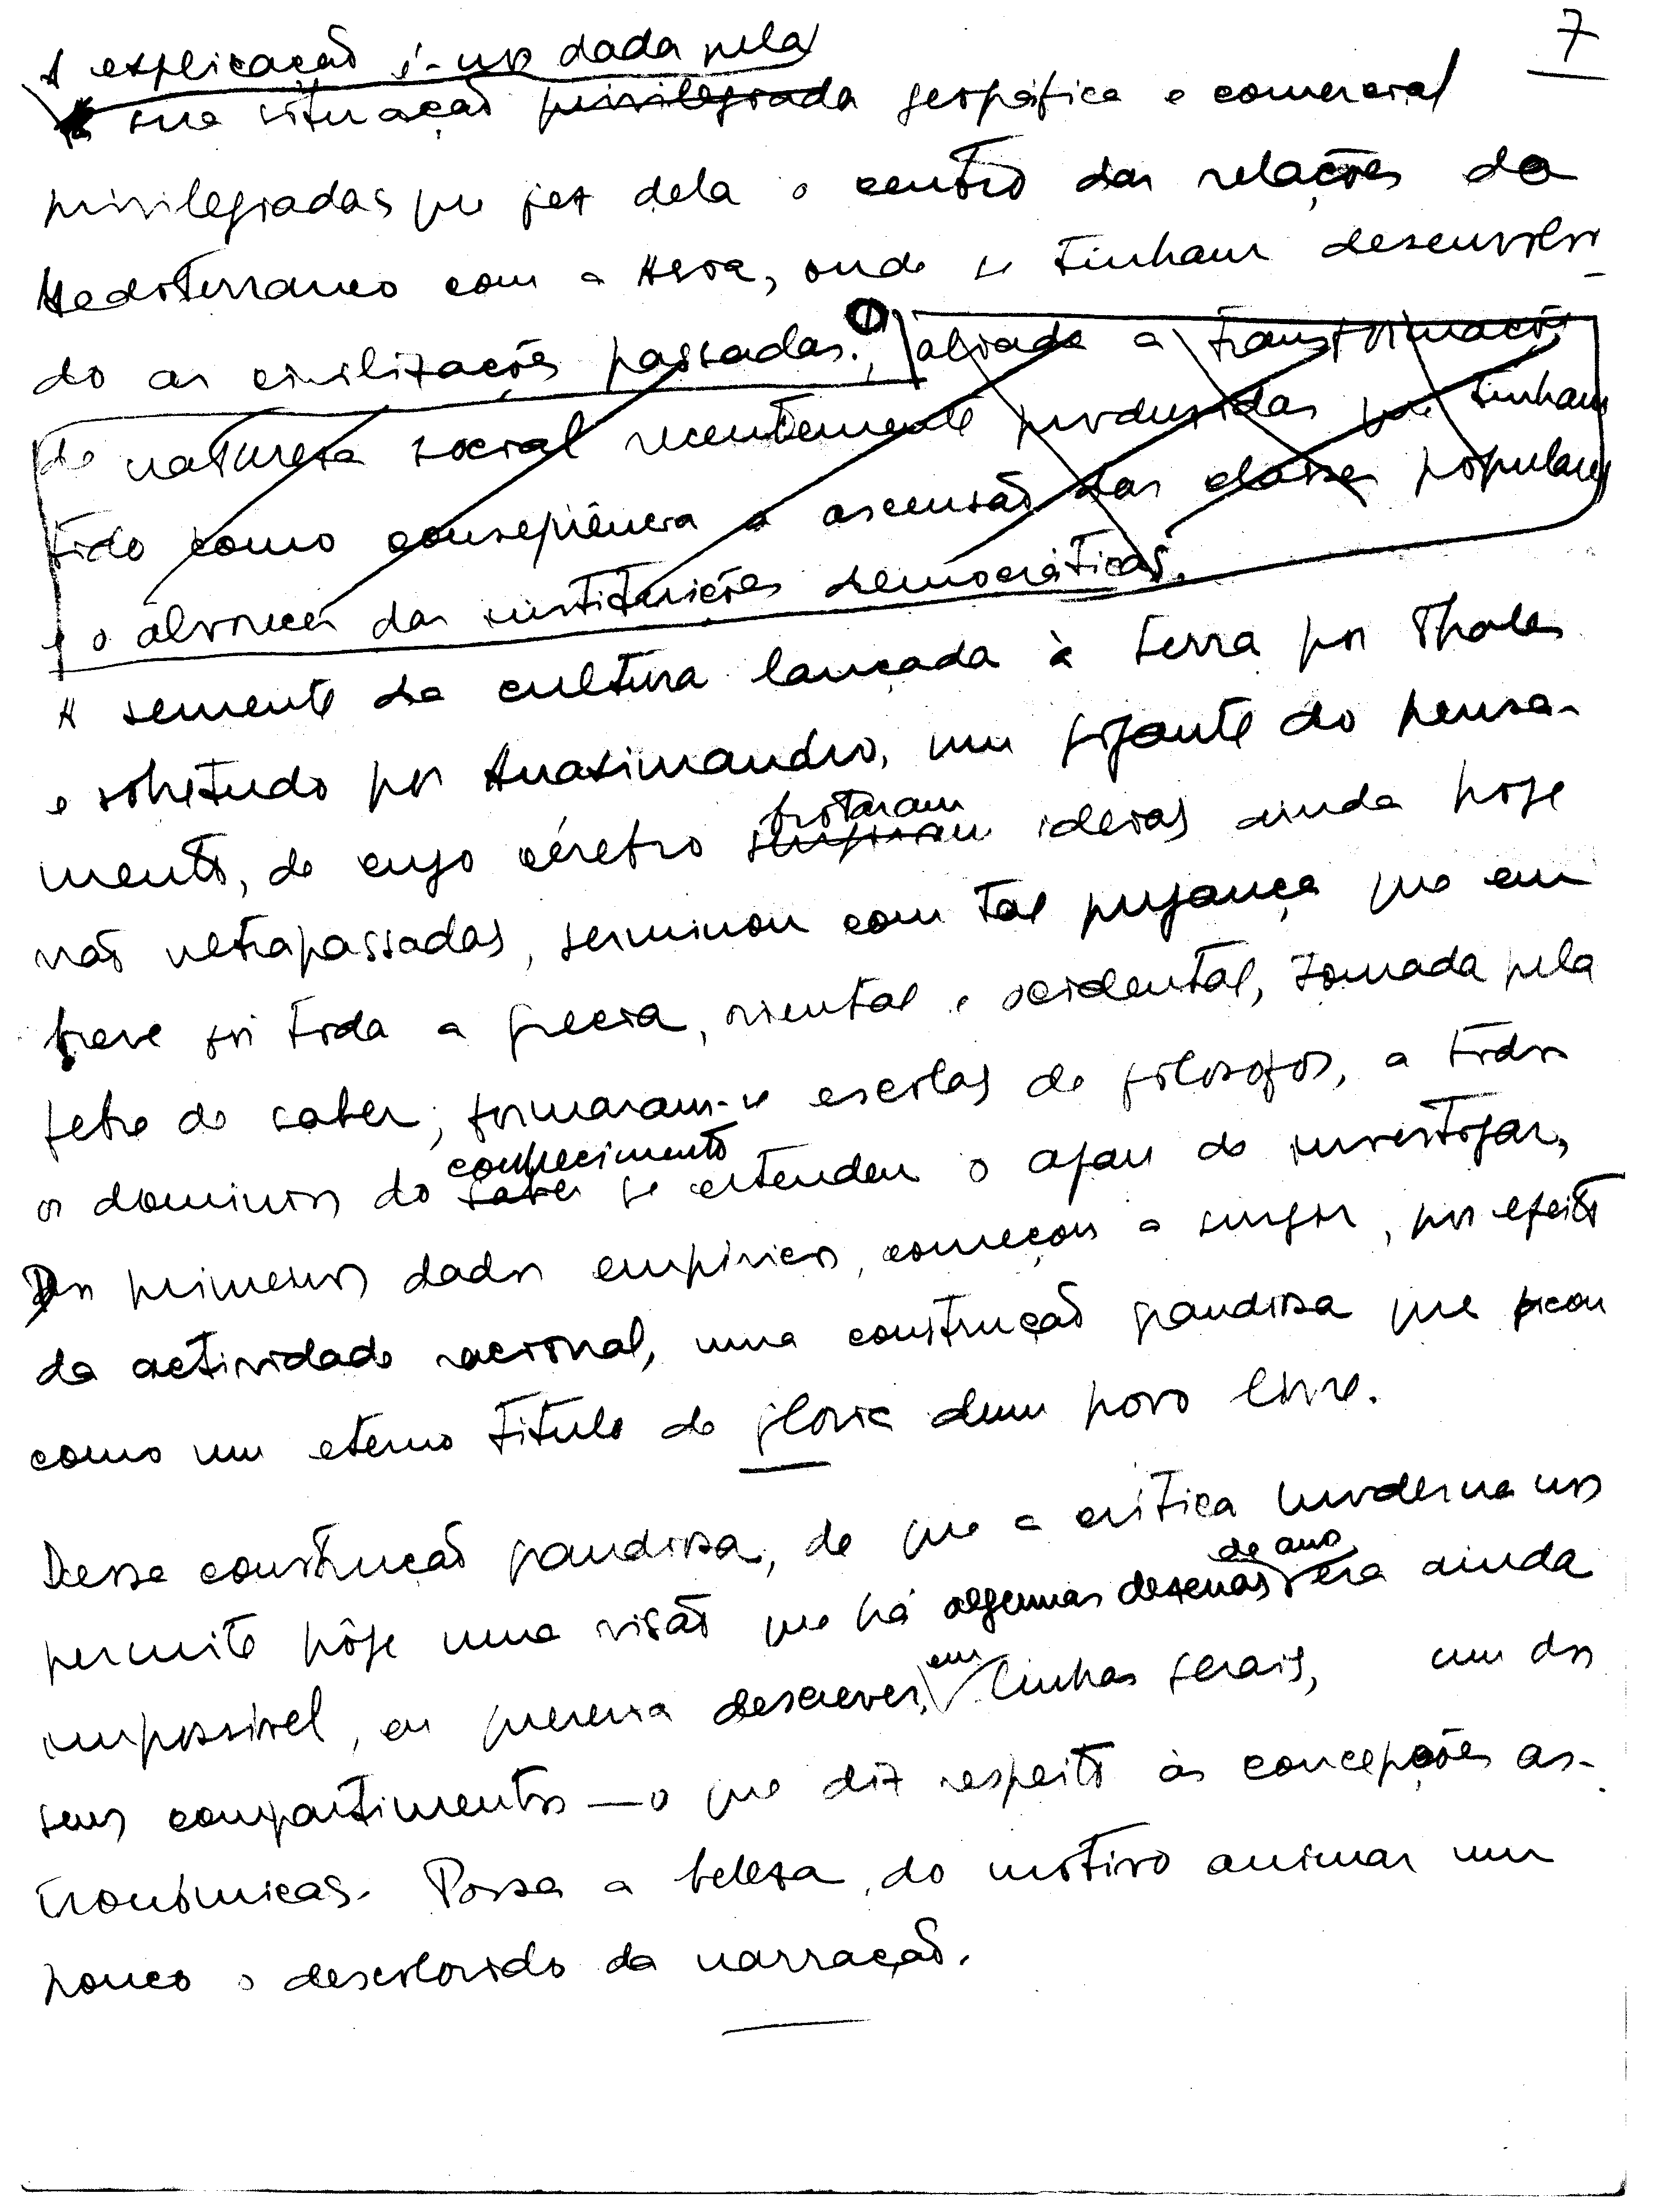 7
A explicação é-nos dada pela
sua situação privilegiada geográfica e comercial
privilegiadas que fez dela o centro das relações do
Mediterraneo com a Asia, onde se tinham desenvolvi-
do as civilizações passadas., aliada a transformações
de natureza social recentemente produzidas que tinham
tido como consequência a ascensão das classes populares
e o alvorecer das instituições democráticas.
A semente da cultura lançada à terra por Thales
e sobretudo por Anaximandro, um gigante do pensa-
brotaram
mento, de cujo cérebro surgiram ideias ainda hoje
não ultrapassadas, germinou com tal pujança que em
breve foi toda a Grecia, oriental e ocidental, tomada pela
febre do saber; formaram-se escolas de filosofos, a todos
conhecimento
os dominios do saber se estendeu o afan de investigar,
Dos primeiros dados empiricos, começou a surgir, por efeito
da actividade racional, uma construção grandiosa que ficou
como um eterno titulo de gloria dum povo livre.
Dessa construção grandiosa, de que a critica moderna nos
de anos
permite hôje uma visão que há algumas dezenas era ainda
em
impossivel, eu quereria descrever, linhas gerais, um dos
seus compartimentos — o que diz respeito às concepções as-
tronómicas. Possa a beleza do motivo animar um
pouco o descolorido da narração.